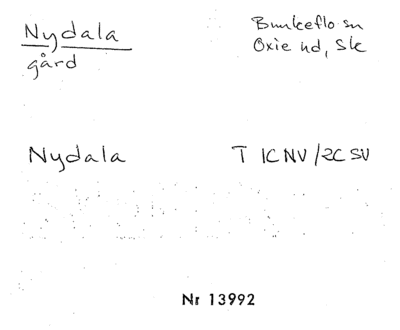 Nydala
gård
Bunkeflo sn
Oxie hd, Sk
Nydala T 1CNV/2CSV
Nr 13992